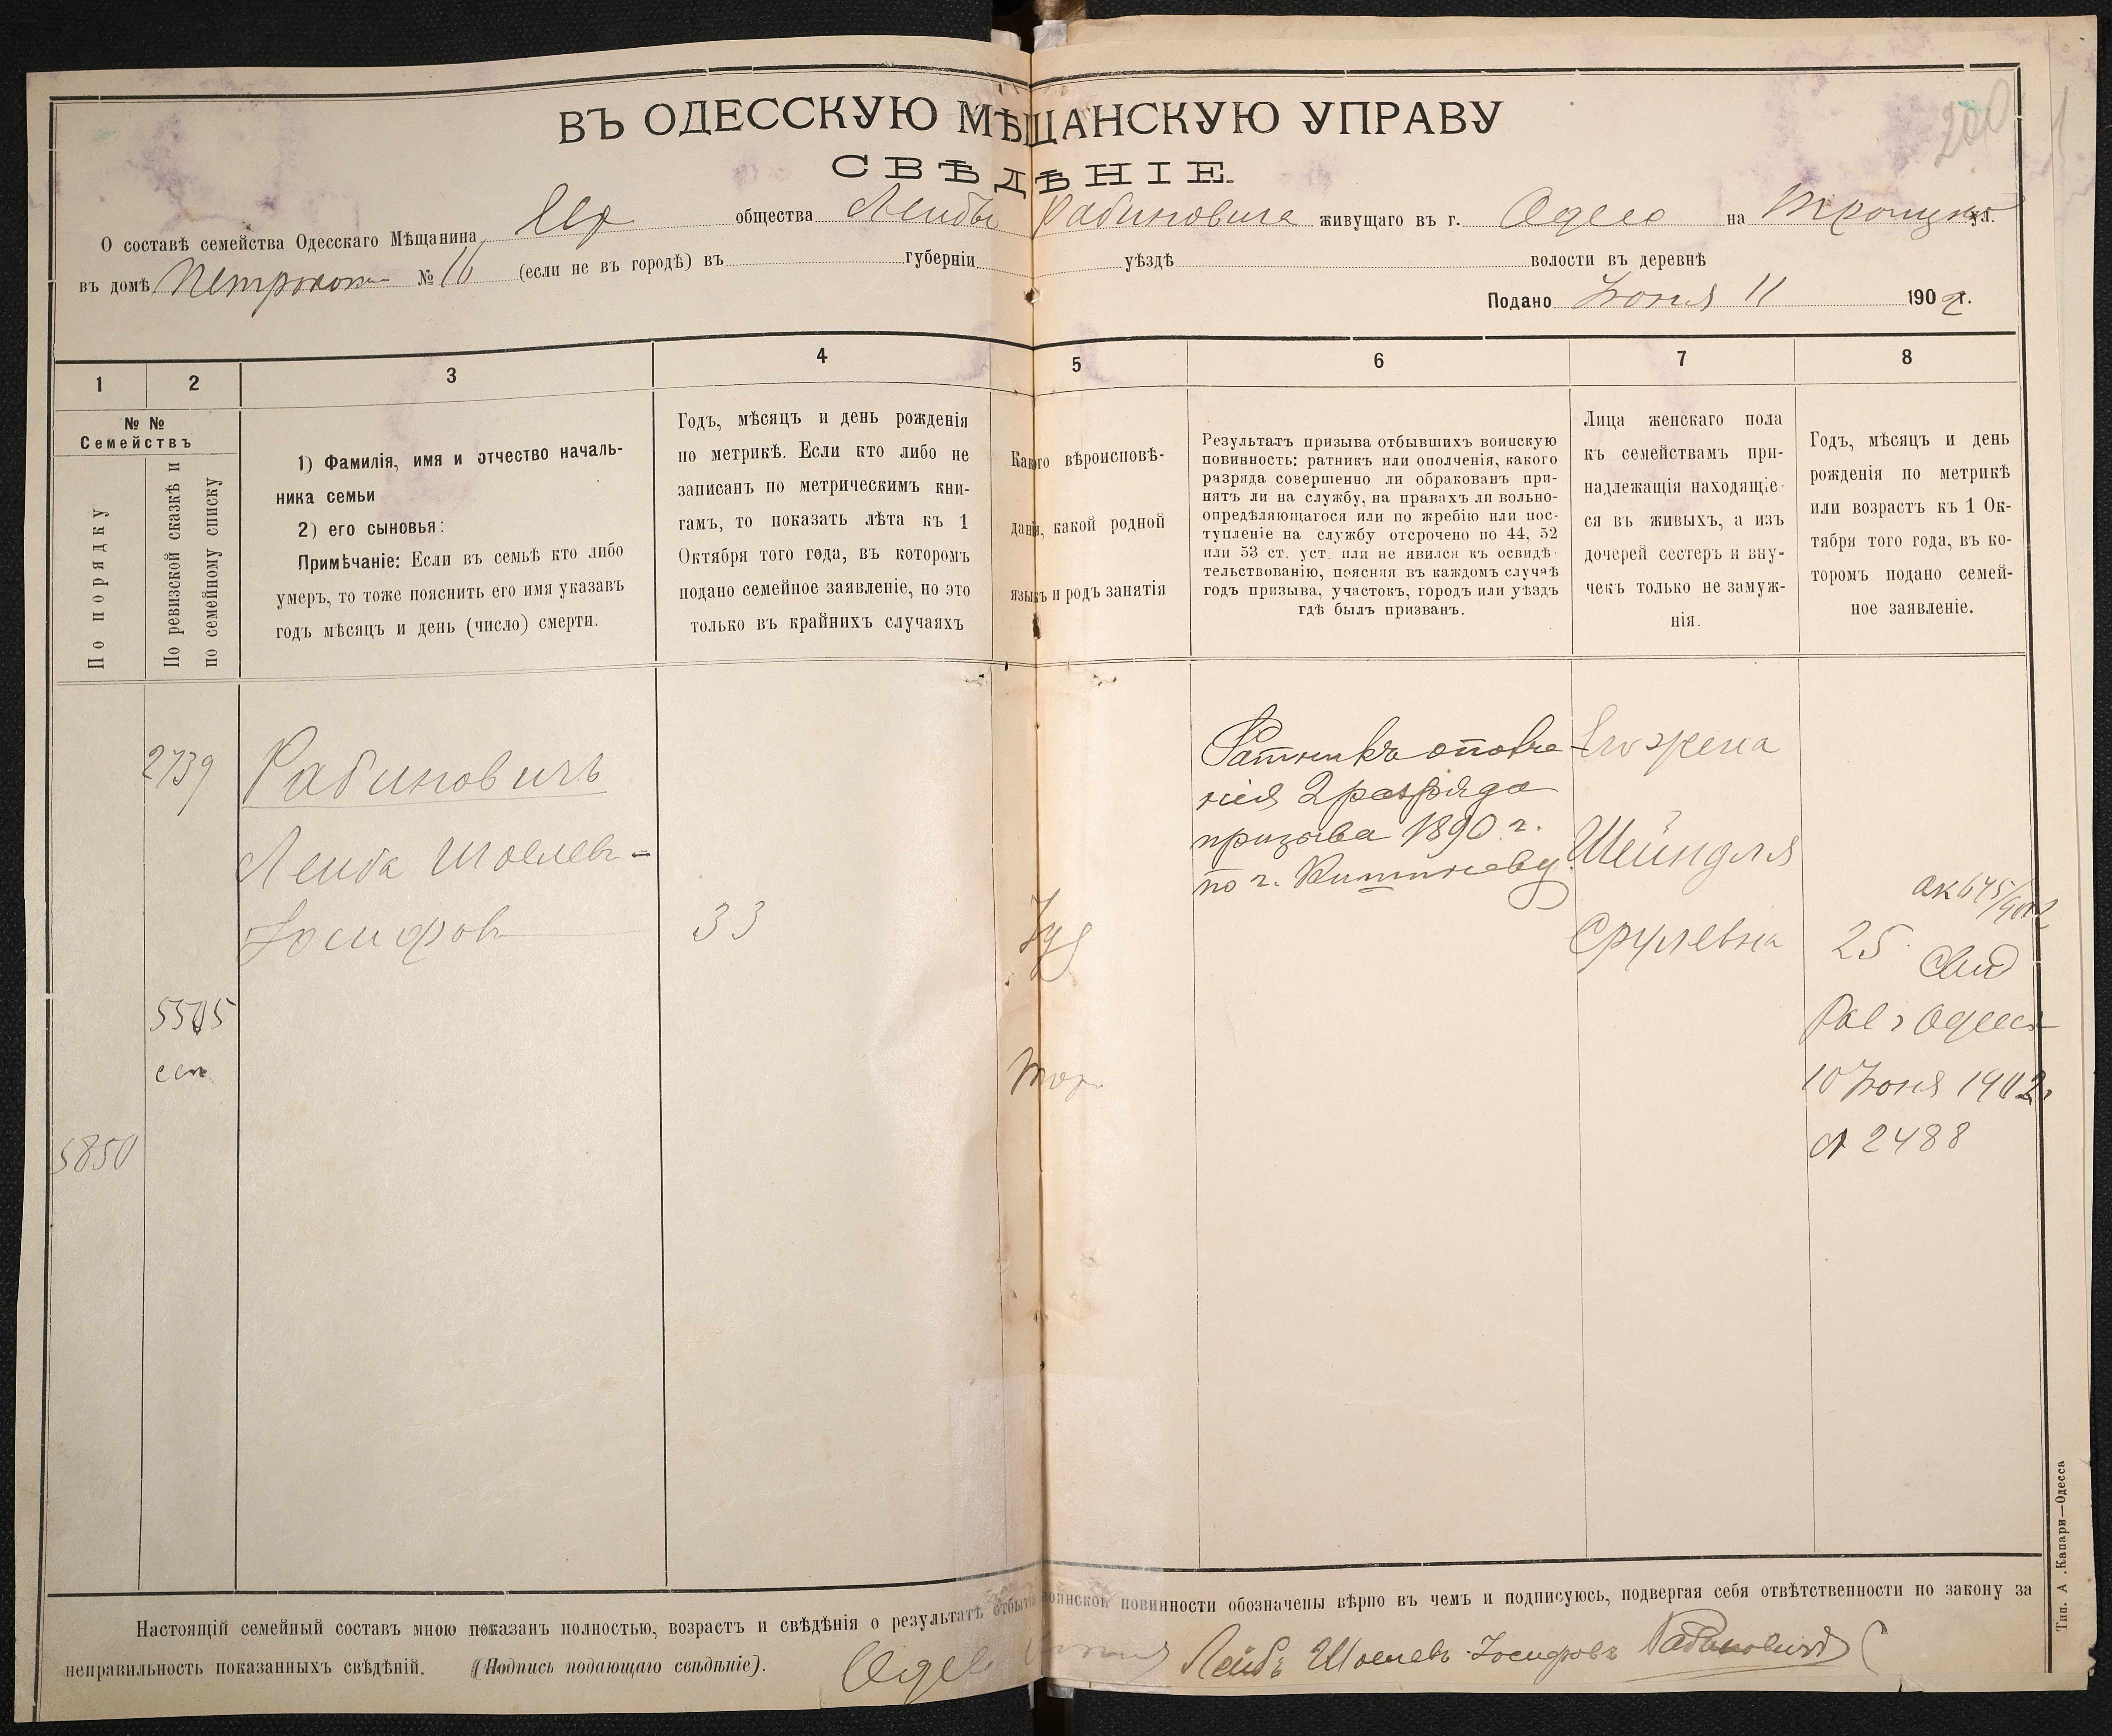 200
ВЪ ОДЕССКУЮ МѢЩАНСКУЮ УПРАВУ
СВѢДѢНІЕ.
О составѣ семейства Одесскаго Мѣщанина Евр общества Лейбы Рабиновича живущаго въ г. Одесс на Троицкой ул.
въ домѣ № 16 (если не въ городѣ) въ губерніи уѣздѣ волости въ деревнѣ
Подано Іюня 11 1902 г.
1 2 3 4 5 6 7 8
№ №
Семействъ
По порядку
По ревизской сказкѣ и
по семейному списку
1) Фамилія, имя и отчество началь-
ника семьи
2) его сыновья:
Примѣчаніе: Если въ семьѣ кто либо
умеръ, то тоже пояснить его имя указавъ
годъ мѣсяцъ и день (число) смерти.
Годъ, мѣсяцъ и день рожденія
по метрикѣ. Если кто либо не
записанъ по метрическимъ кни-
гамъ, то показать лѣта къ 1
Октября того года, въ которомъ
подано семейное заявленіе, но это
только въ крайнихъ случаяхъ
Какого вѣроисповѣ-
данія, какой родной
языкъ и родъ занятія
Результатъ призыва отбывшихъ воинскую
повинность: ратникъ или ополченія, какого
разряда совершенно ли обракованъ при-
нятъ ли на службу, на правахъ ли вольно-
опредѣляющагося или по жребію или пос-
тупленіе на службу отсрочено по 44, 52
или 53 ст. уст. или не явился къ освидѣ-
тельствованію, поясняя въ каждомъ случаѣ
годъ призыва, участокъ, городъ или уѣздъ
гдѣ былъ призванъ.
Лица женскаго пола
къ семействамъ при-
надлежащія находящіе-
ся въ живыхъ, а изъ
дочерей сестеръ и вну-
чекъ только не замуж-
нія.
Годъ, мѣсяцъ и день
рожденія по метрикѣ
или возрастъ къ 1 Ок-
тября того года, въ ко-
торомъ подано семей-
ное заявленіе.
2739
Рабиновичъ
Лейба Шоелевъ-
Іосифовъ
33
Іуд
Тор.
Ратникъ ополче-
нія 2 разряда
призыва 1890 г.
по г. Кишиневу.
Его жена
Шейндля
Срулевна
25
Свид
Рав г Одессы
10 Іюня 1902 г
№ 2488
5850
Настоящій семейный составъ мною показанъ полностью, возрастъ и свѣдѣнія о результатѣ отбытія воинской повинности обозначены вѣрно въ чемъ и подписуюсь, подвергая себя отвѣтственности по закону за
неправильность показанныхъ свѣдѣній. (Подпись подающаго свѣдѣніе).
Лейбъ Шоелевъ-Іосифовъ Рабиновичъ
Тип. А. Капари—Одесса